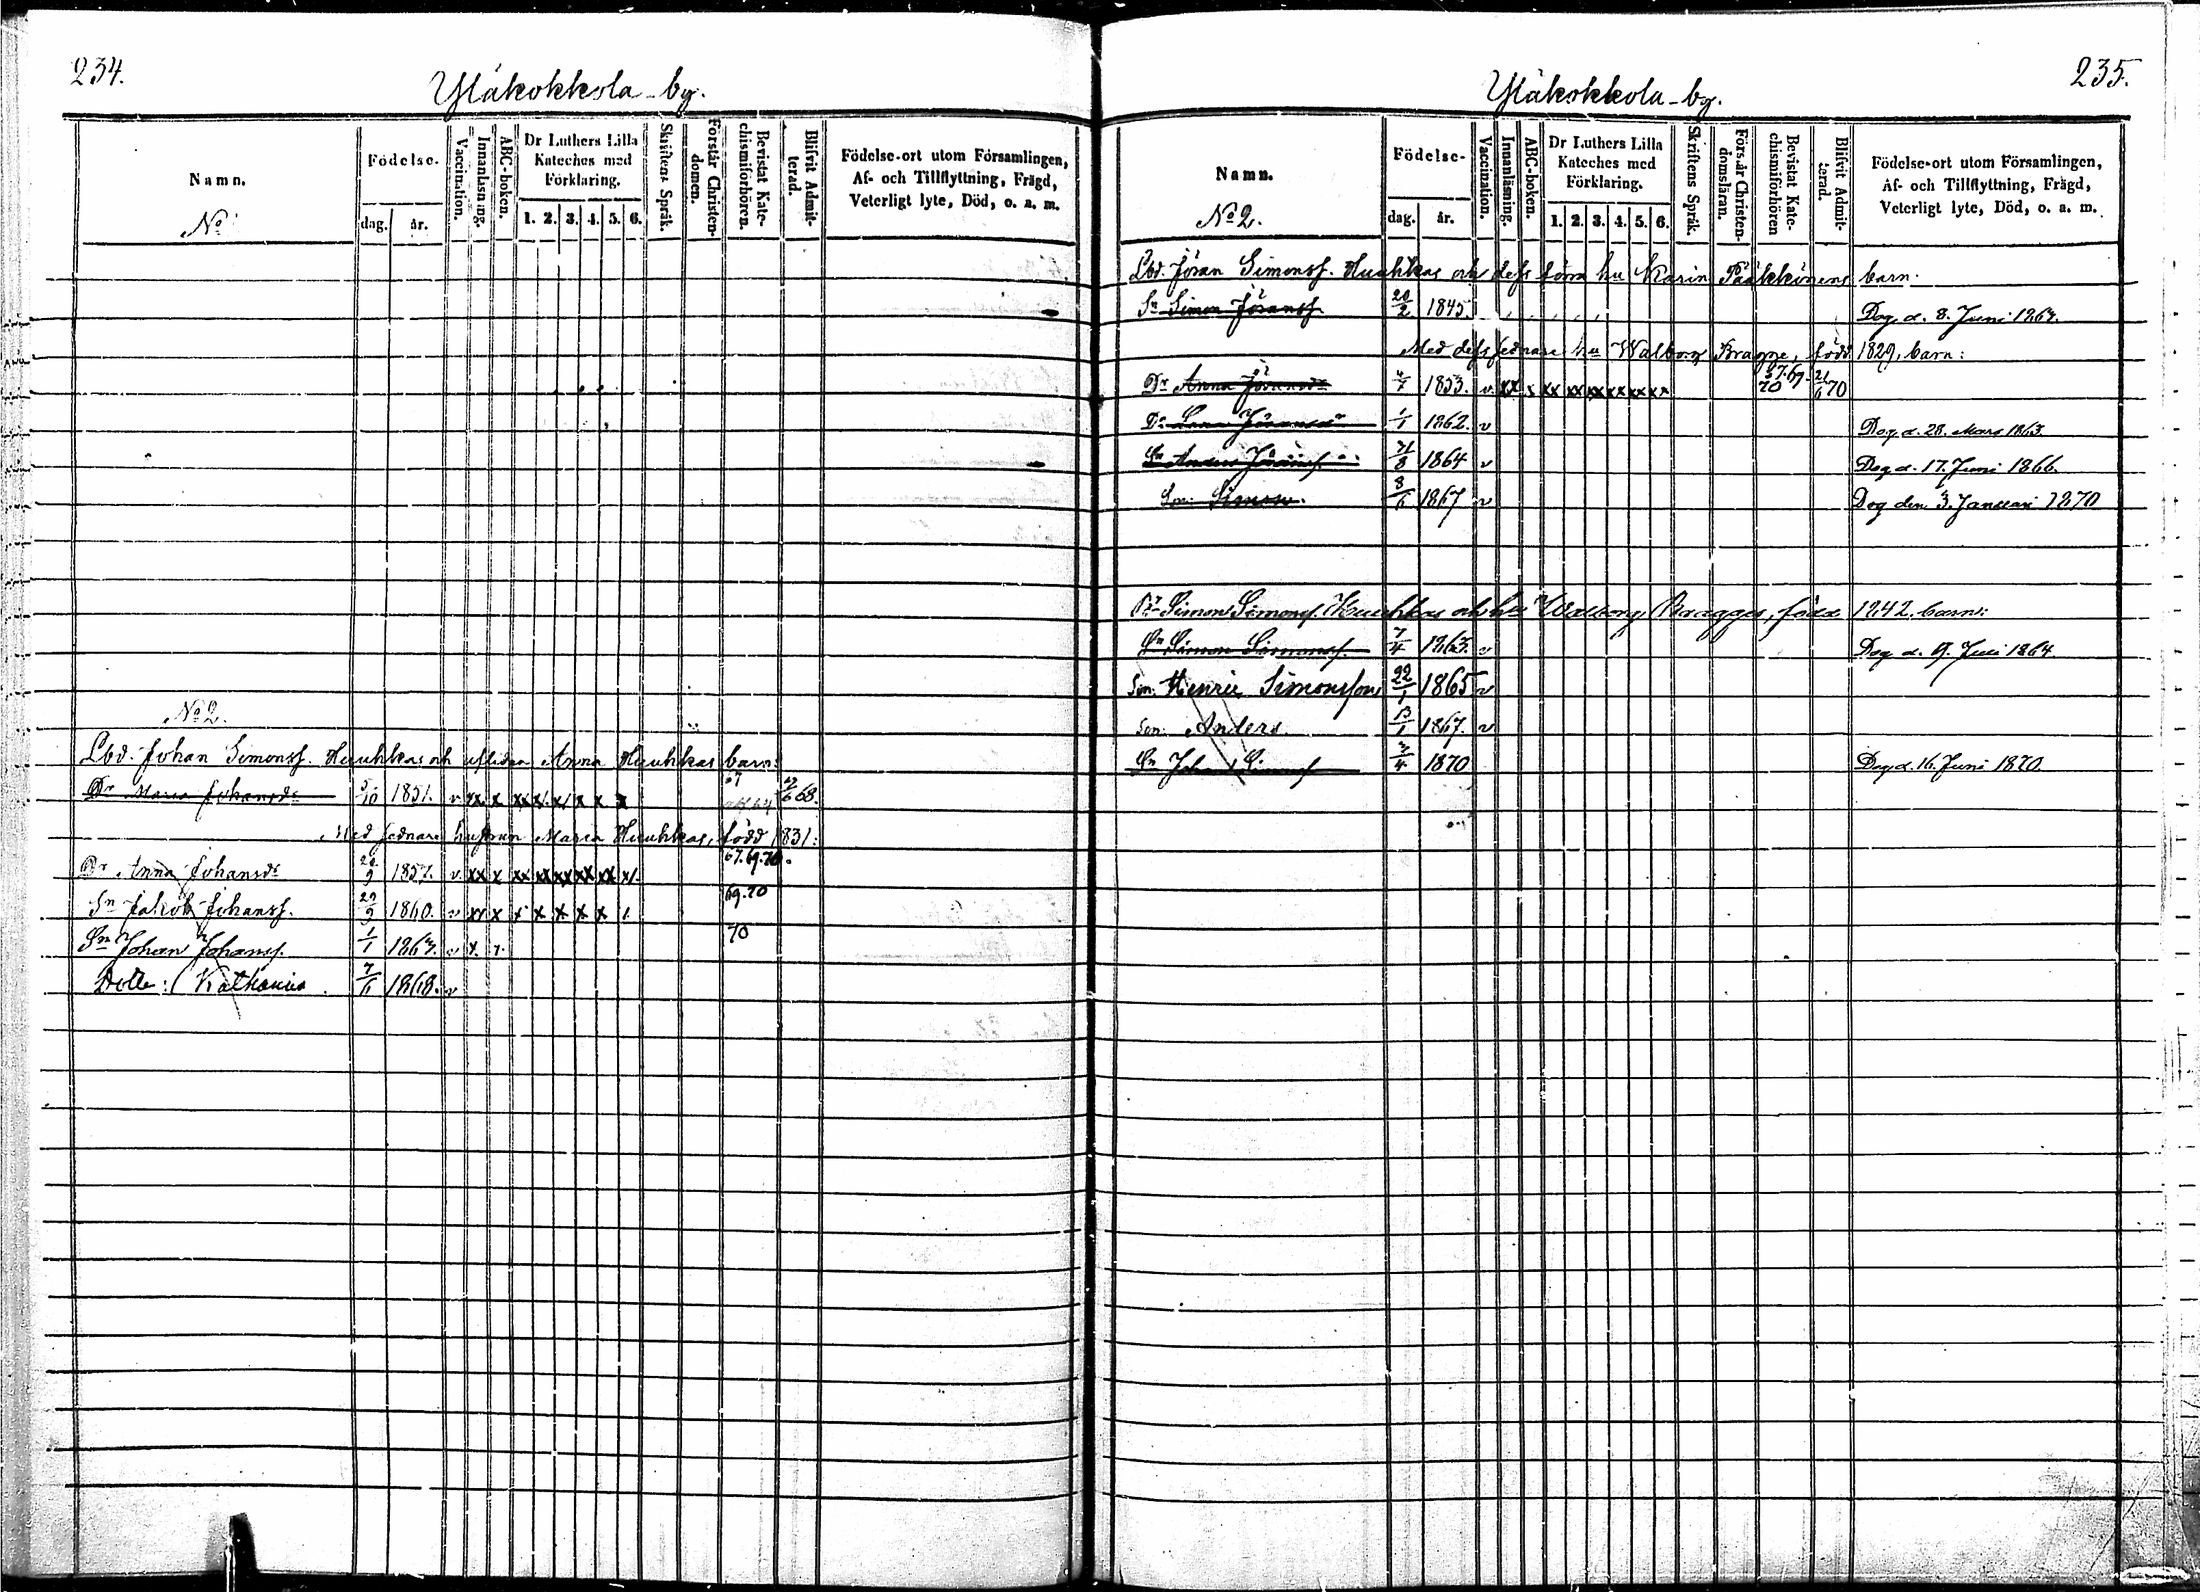 234.
Yläkokkola-by.
Namn.
Födelse-
Vaccination.
Innanläsning.
ABC-boken.
Dr Luthers Lilla
Kateches med
Förklaring.
Skriftens Språk.
Förstår Christen-
domen.
Bevistat Kate-
chismiförhören.
Blifvit Admit-
terad.
Födelse-ort utom Församlingen,
Af- och Tillflyttning, Frägd,
Veterligt lyte, Död, o. a. m.
No
dag. år. 1. 2. 3. 4. 5. 6.
No 2.
Lbd. Johan Simonsf. Huuhkas och aflidna Anna Huuhkas barn:
Dr Maria Johansdr 5/10 1851. v. xx x xx x x x x 67 68.
Med sednare hustrun Maria Huuhkas, född 1831:
Dr Anna Johansdr 20/9 1857. v. xx x xx xx xx xx xx x 67.69.70.
Sn Jakob Johansf. 29/9 1860. v xx x x x x x x 69.70
Sn Johan Johansf. 1/1 v x 70
Dotte: Katharina 7/6 1868. v
235.
Yläkokkola-by.
Namn.
Födelse-
Vaccination.
Innanläsning.
ABC-boken.
Dr Luthers Lilla
Kateches med
Förklaring.
Skriftens Språk.
Förstår Christen-
domsläran.
Bevistat Kate-
chismiförhören
Blifvit Admit-
terad.
Födelse-ort utom Församlingen,
Af- och Tillflyttning, Frägd,
Veterligt lyte, Död, o. a. m.
No 2.
dag. år. 1. 2. 3. 4. 5. 6.
Lbd. Jöran Simonsf. Huuhkas och dess förra hu Karin Pääkkönens barn:
Sn Simon Jöransf 20/2 1845. Dog. d. 8. Juni
Med dess sednare hu Walborg Bragge, född 1829, barn:
Dr Anna Jöransdr 1853. v. xx x xx xx xx xx xx xx 67.69 70 21/6 70
Dr Jöransdr 1/1 1862. v Dog d. 28. Mars 1863.
Sn Anders Jöransf. 1864 v Dog d. 17. Juni 1866.
Son: Simon. 8/6 1867 v Dog den 3. Januari 1870
Simon Simonsf. Huuhkas och hu Walborg Bragges, född 1842. barn:
Sn Simon Simonsf. 7/4 1863. v Dog d. 9. 1864.
Son: Henric Simonsson 22/1 1865 v
Son: Anders 13/1 1867. v
Sn Johan Simonsf 3/4 1870 Dog d. 16. Juni 1870.